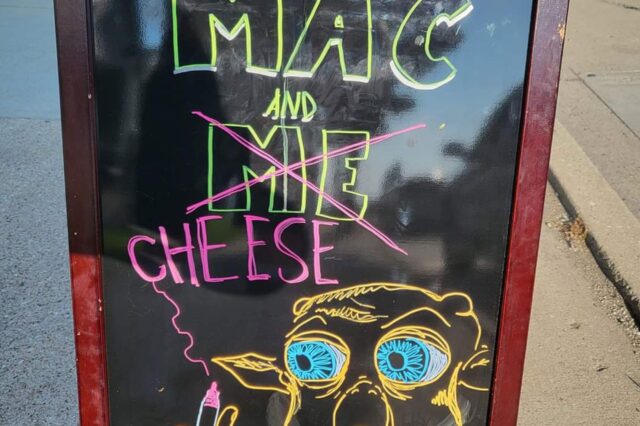 MAC
AND
ME
CHEESE